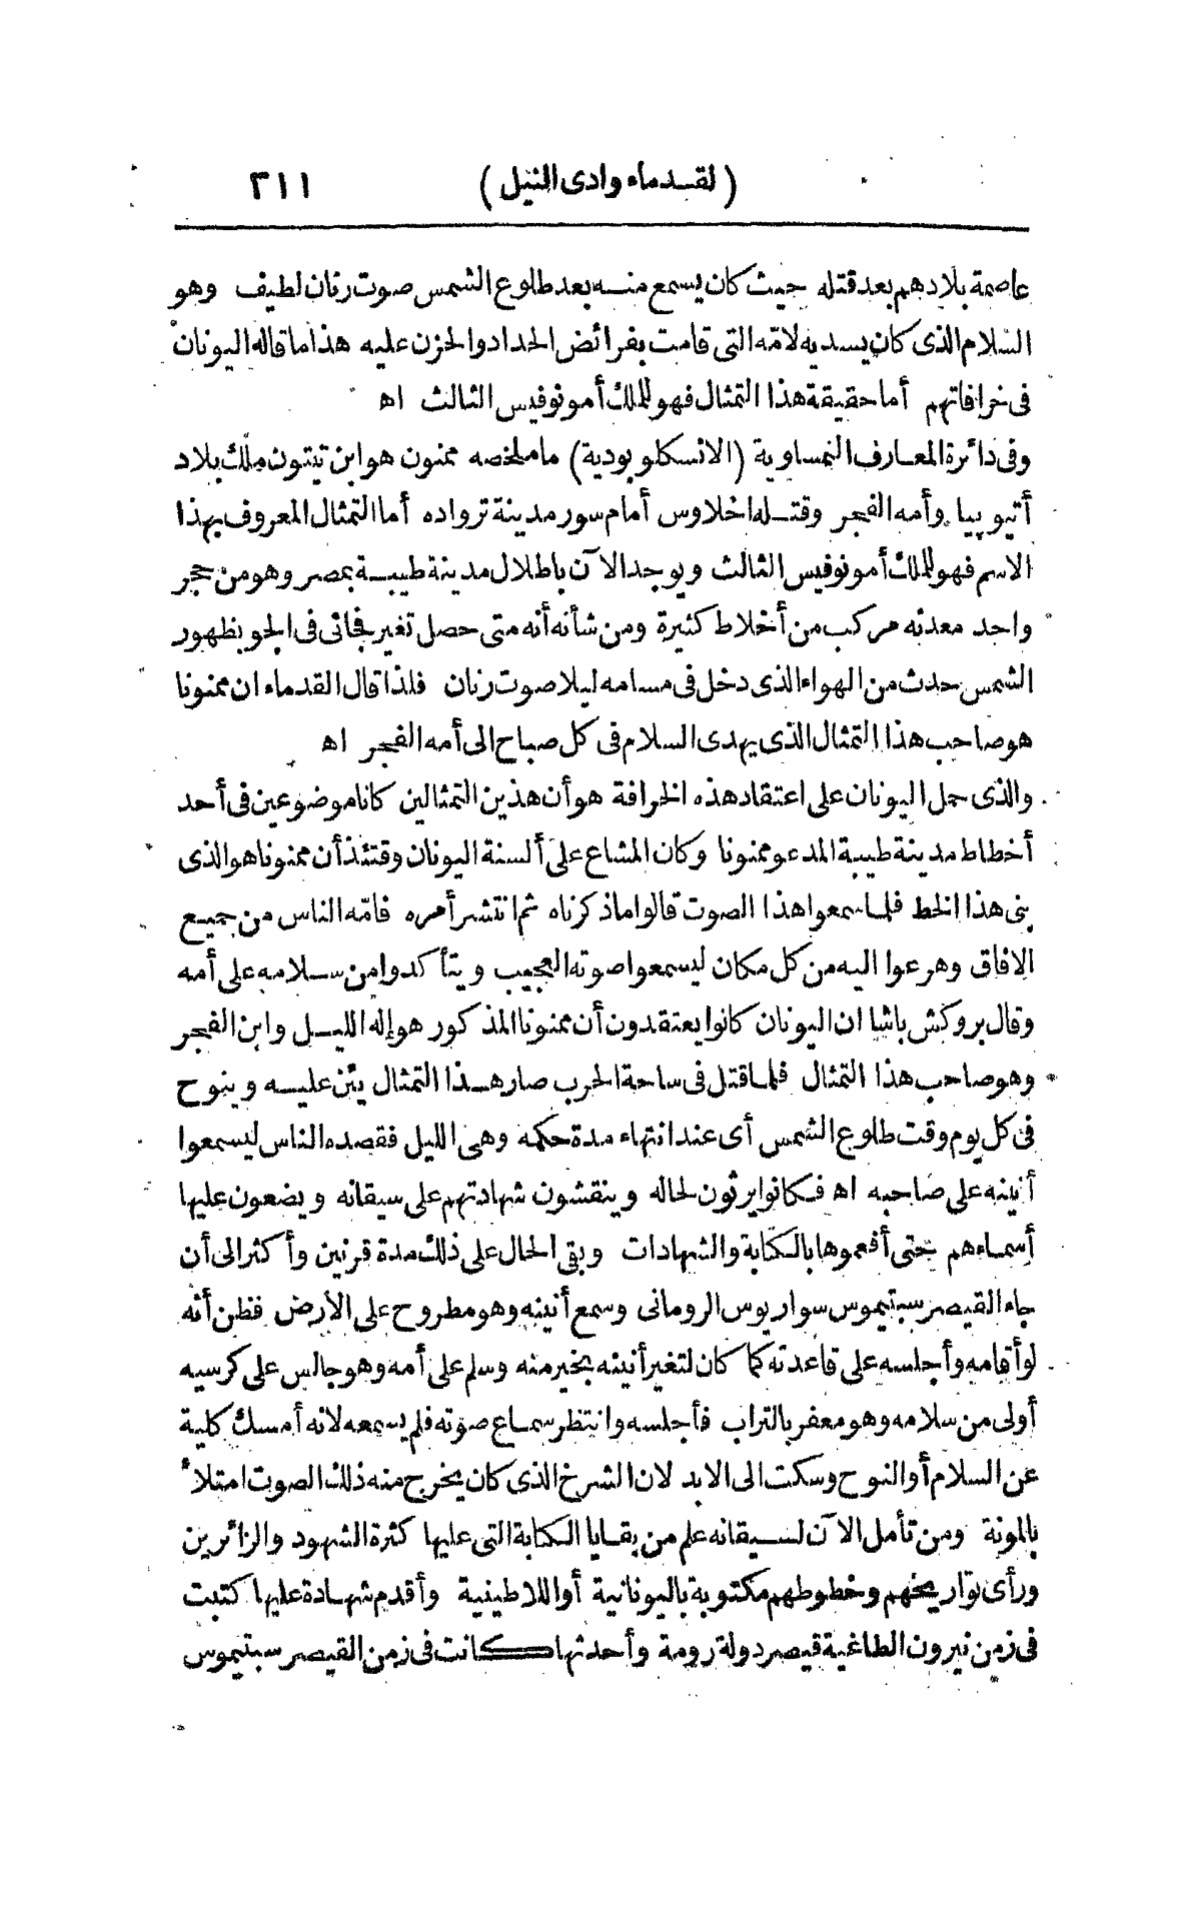 (لقدماء وادى النيل) ٣١١
عاصمة بلادهم بعد قتله حيث كان يسمع منه بعد طلوع الشمس صوت رنان لطيف وهو
السلام الذى كان يسديه لامّه التى قامت بفرائض الحداد والحزن عليه هذا ما قاله اليونان
فى خرافاتهم أما حقيقة هذا التمثال فهو للملك أمونوفيس الثالث اه
وفى دائرة المعارف النمساوية (الانسكلوبودية) ما ملخصه ممنون هو ابن تيتون ملك بلاد
أتيوپيا وأمه الفجر وقتله اخلاوس أمام سور مدينة ترواده أما التمثال المعروف بهذا
الاسم فهو للملك أمونوفيس الثالث ويوجد الآن باطلال مدينة طيبة بمصر وهو من حجر
واحد معدنه مركب من أخلاط كثيرة ومن شأنه أنه متى حصل تغير فجائى فى الجو بظهور
الشمس حدث من الهواء الذى دخل فى مسامه ليلا صوت رنان فلذا قال القدماء ان ممنونا
هو صاحب هذا التمثال الذى يهدى السلام فى كل صباح الى أمه الفجر اه
والذى حمل اليونان على اعتقاد هذه الخرافة هو أن هذين التمثالين كانا موضوعين فى أحد
أخطاط مدينة طيبة المدعو ممنونا وكان المشاع على ألسنة اليونان وقتئذ أن ممنونا هو الذى
بنى هذا الخط فلما سمعوا هذا الصوت قالوا ما ذكرناه ثم انتشر أمره فامّه الناس من جميع
الافاق وهرعوا اليه من كل مكان ليسمعوا صوته العجيب ويتأكدوا من سلامه على أمه
وقال بروكش باشا ان اليونان كانوا يعتقدون أن ممنونا المذكور هو إله الليل وابن الفجر
وهو صاحب هذا التمثال فلما قتل فى ساحة الحرب صار هذا التمثال يئن عليه وينوح
فى كل يوم وقت طلوع الشمس أى عند انتهاء مدة حكمه وهى الليل فقصده الناس ليسمعوا
أنينه على صاحبه اه فكانوا يرثون لحاله وينقشون شهادتهم على سيقانه ويضعون عليها
أسماءهم حتى أفعموها بالكتابة والشهادات وبقى الحال على ذلك مدة قرنين وأكثر الى أن
جاء القيصر سبتيموس سواريوس الرومانى وسمع أنينه وهو مطروح على الارض فظن أنه
لو أقامه وأجلسه على قاعدته كما كان لتغير أنينه بخير منه وسلم على أمه وهو جالس على كرسيه
أولى من سلامه وهو معفر بالتراب فأجلسه وانتظر سماع صوته فلم يسمعه لانه أمسك كلية
عن السلام أو النوح وسكت الى الابد لان الشرخ الذى كان يخرج منه ذلك الصوت امتلأ
بالمونة ومن تأمل الآن لسيقانه علم من بقايا الكتابة التى عليها كثرة الشهود والزائرين
ورأى تواريخهم وخطوطهم مكتوبة باليونانية أو اللاطينية وأقدم شهادة عليها كتبت
فى زمن نيرون الطاغية قيصر دولة رومة وأحدثها كانت فى زمن القيصر سبتيموس